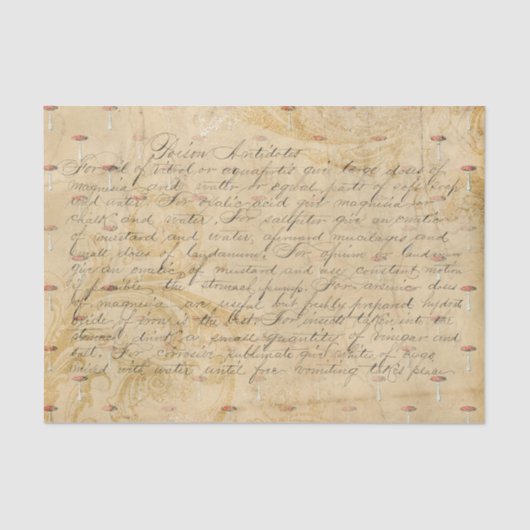 Poison Antidotes
For oil of vitriol or aquafortis give large doses of
magnesia and water or equal parts of soft soap
and water. For oxalic acid give magnesia or
chalk and water. For saltpeter give an emetic
of mustard and water, afterward mucilages and
small doses of laudanum. For opium or laudanum
give an emetic of mustard and use constant motion
if possible the stomach pump. For arsenic doses
of magnesia are useful but freshly prepared hydrat
oxide of iron is the best. For insects taken into the
stomach drink a small quantity of vinegar and
salt. For corrosive sublimate give whites of eggs
mixed with water until free vomiting takes place